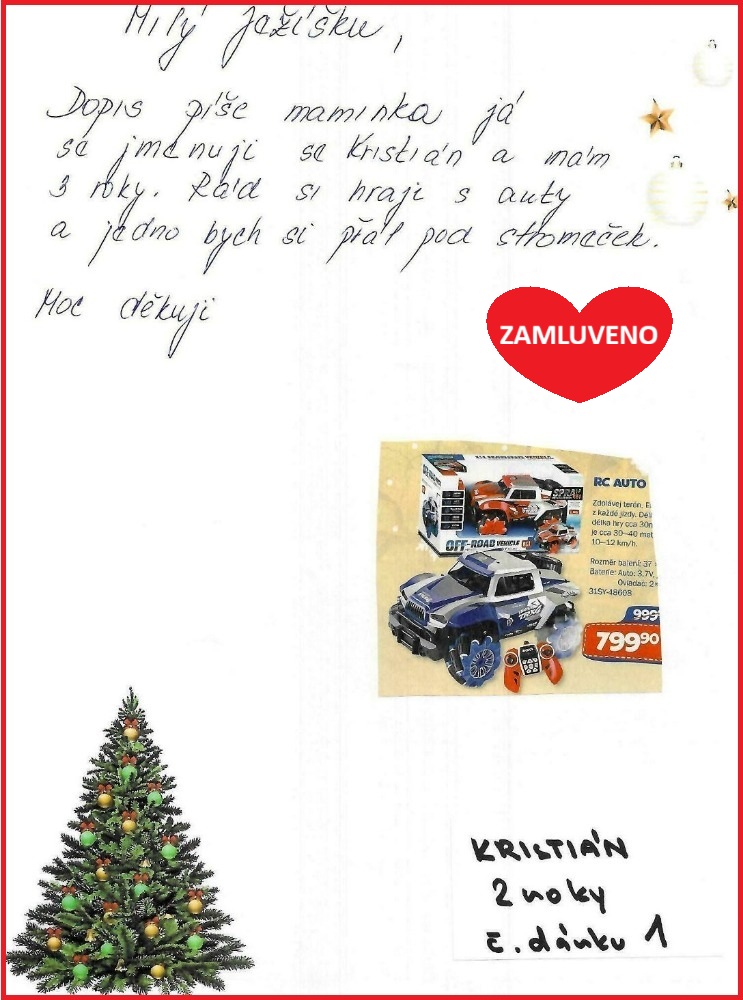 Milý Ježíšku,
Dopis píše maminka já
se jmenuji se Kristián a mám
3 roky. Rád si hraji s auty
a jedno bych si přál pod stromeček.
Moc děkuji
ZAMLUVENO
RC AUTO
OFF-ROAD VEHICLE
Zdolávej terén.
z každé jízdy.
délka hry cca 30
je cca 30–40
10–12 km/h.
Rozměr balení: 37
Baterie: Auto: 3.7V,
Ovladač: 2
31SY-48608
999
799⁹⁰
KRISTIÁN
2 roky
č. dárku 1